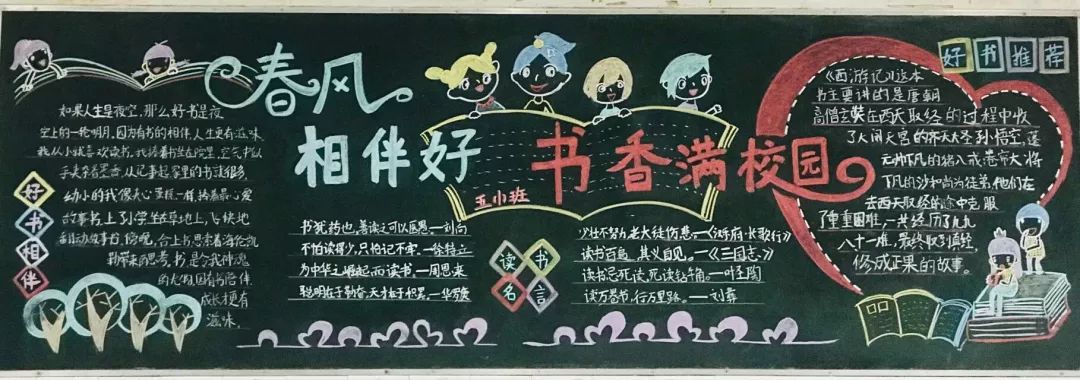 春风
相伴好
书香满校园
五小班
好书相伴
如果人生是夜空,那么好书是夜
空上的一轮明月,因为有书的相伴,人生更有滋味
我从小就喜欢读书,我捧着书坐在院里,空气中似
从记事起家里的书就很多,
幼小的我像
故事书,上了小学坐在草地上,飞快地
合上书思索着
书是令我神魂
书陪伴,
成长更有
滋味。
书犹药也,善读之可以医愚—刘向
不怕读得少,只怕记不牢。—徐特立
为中华之崛起而读书—周恩来
聪明在于勤奋,天才在于积累。—华罗庚
读书名言
少壮不努力老大徒伤悲。—《汉乐府·长歌行》
读书百遍,其义自见。—《三国志》
读书忌死读,死读钻牛角。—叶圣陶
读万卷书,行万里路。—刘彝
好书推荐
《西游记》这本
书主要讲的是唐朝
高僧玄奘在西天取经的过程中收
了大闹天宫的齐天大圣孙悟空,蓬
元帅下凡的猪八戒卷帘大将
下凡的沙和尚为徒弟,他们在
去西天取经的途中克服
了重重困难,一共经历了九九
八十一难,最终取到真经,
修成正果的故事。